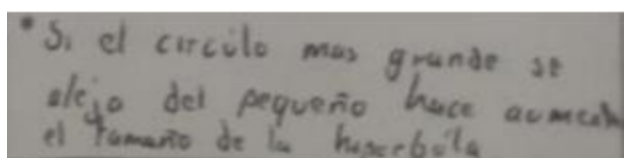 * Si el circulo mas grande se
aleja del pequeño hace aumenta
el tamaño de la hiperbola